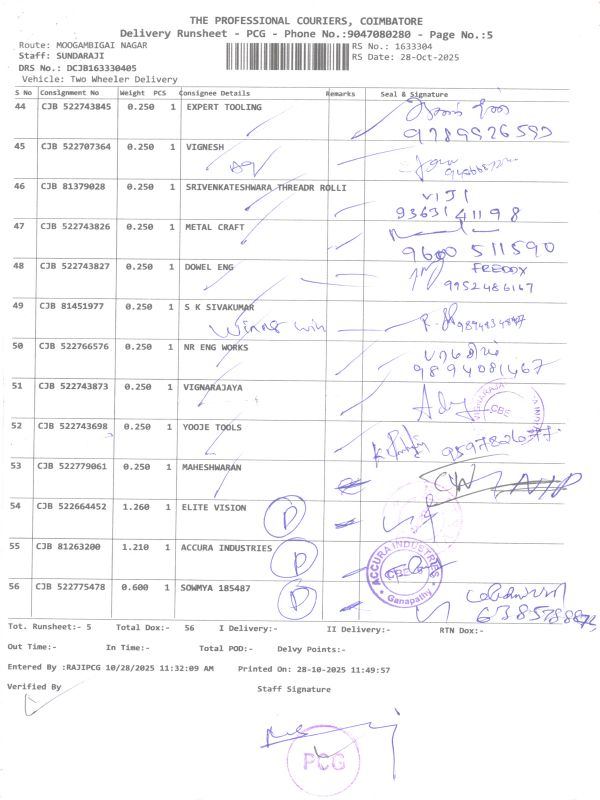 THE PROFESSIONAL COURIERS, COIMBATORE
Delivery Runsheet - PCG - Phone No.:9047080280 - Page No.:5
Route: MOOGAMBIGAI NAGAR RS No.: 1633304
Staff: SUNDARAJI RS Date: 28-Oct-2025
DRS No.: DCJB163330405
Vehicle: Two Wheeler Delivery
S No Consignment No Weight PCS Consignee Details Remarks Seal & Signature
44 CJB 522743845 0.250 1 EXPERT TOOLING
45 CJB 522707364 0.250 1 VIGNESH
46 CJB 81379028 0.250 1 SRIVENKATESHWARA THREADR ROLLI VIJI
93631 41198
47 CJB 522743826 0.250 1 METAL CRAFT
9600 511590
48 CJB 522743827 0.250 1 DOWEL ENG FREDDY
9952486167
49 CJB 81451977 0.250 1 S K SIVAKUMAR
50 CJB 522766576 0.250 1 NR ENG WORKS
9894081467
51 CJB 522743873 0.250 1 VIGNARAJAYA
CBE
52 CJB 522743698 0.250 1 YOOJE TOOLS
53 CJB 522779061 0.250 1 MAHESHWARAN
54 CJB 522664452 1.260 1 ELITE VISION D
55 CJB 81263200 1.210 1 ACCURA INDUSTRIES D ACCURA INDUSTRIES
CBE
Ganapathy
56 CJB 522775478 0.600 1 SOWMYA 185487 D
Tot. Runsheet:- 5 Total Dox:- 56 I Delivery:- II Delivery:- RTN Dox:-
Out Time:- In Time:- Total POD:- Delvy Points:-
Entered By :RAJIPCG 10/28/2025 11:32:09 AM Printed On: 28-10-2025 11:49:57
Verified By Staff Signature
PCG